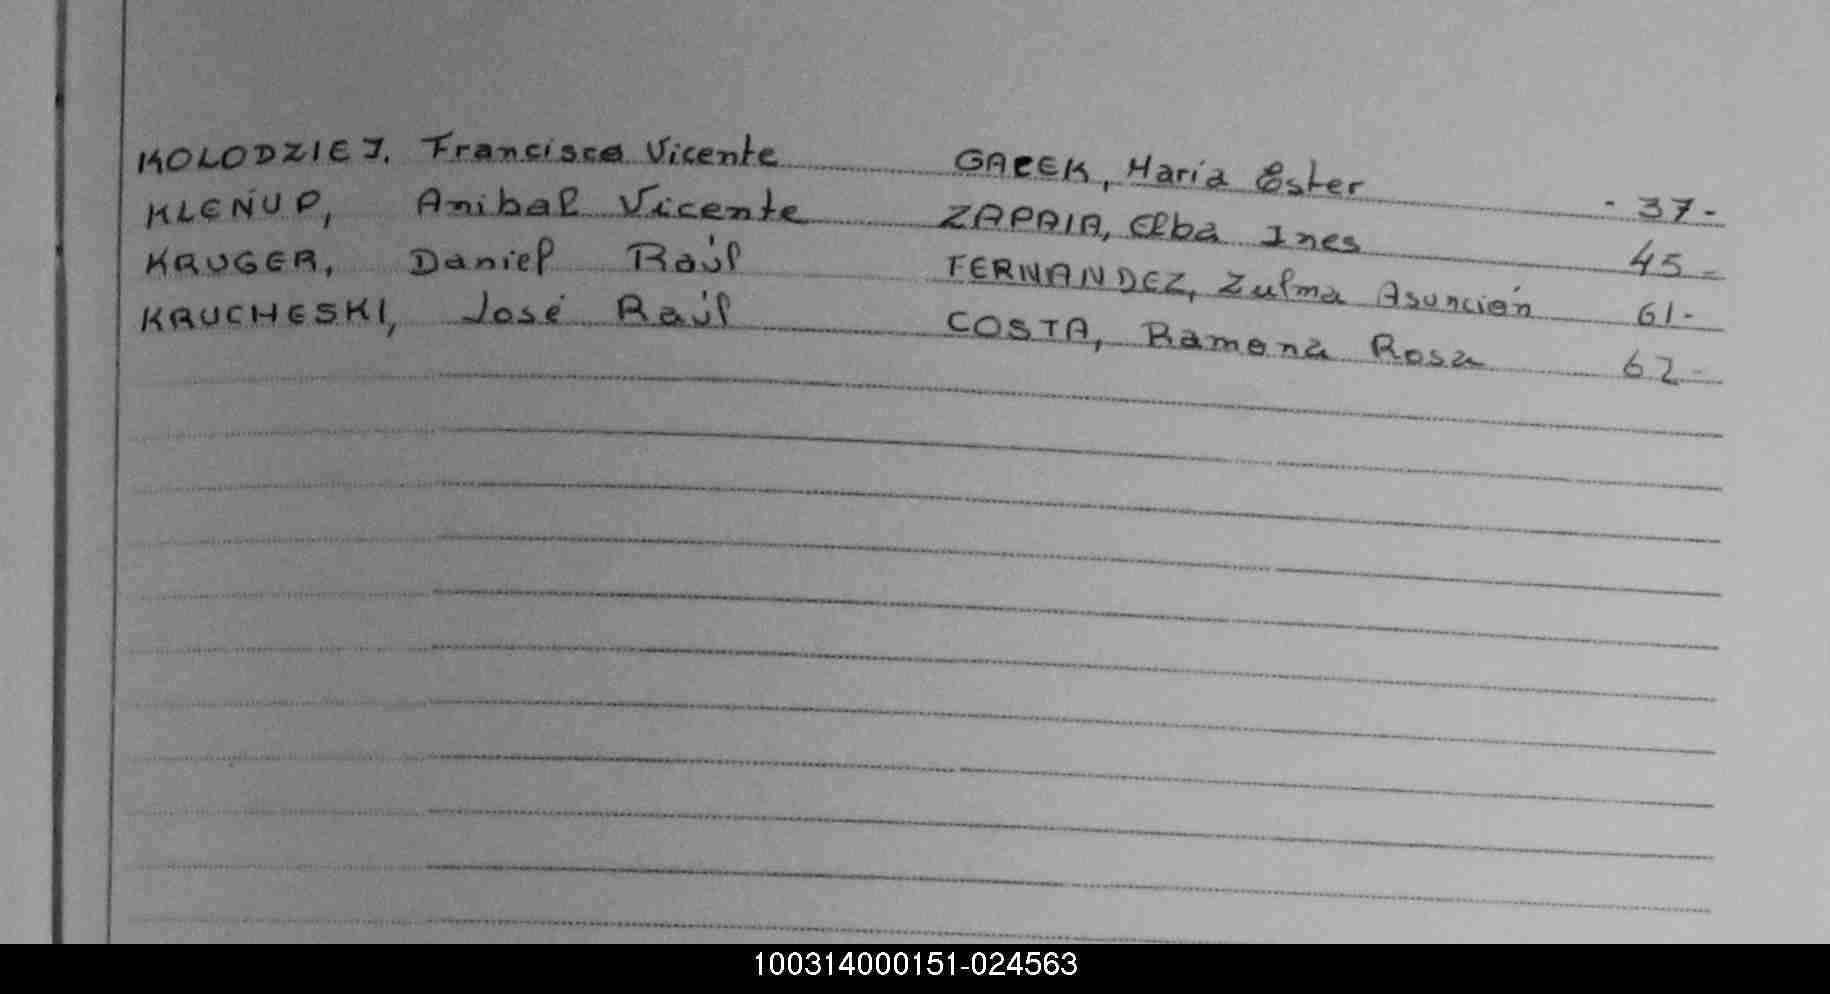 KOLODZIEJ, Francisco Vicente GACEK, Maria Ester - 37 -
KLEÑUP, Anibal Vicente ZAPAIA, Elba Ines 45 -
KRUGER, Daniel Raúl FERNANDEZ, Zulma Asunción 61 -
KRUCHESKI, José Raúl COSTA, Ramona Rosa 62 -
100314000151-024563